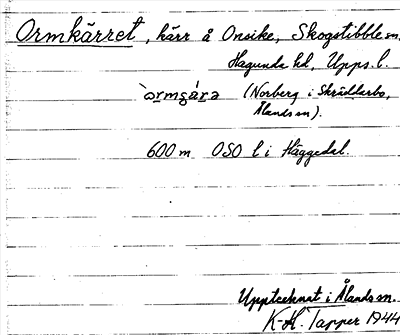 Ormkärret, kärr å Onsike, Skogstibble sn,
Hagunda hd, Upps. l.
`ormçár̥ə (Norberg i Skräddarbo,
Ålands sn).
600 m OSO l i Häggedal.
Upptecknat i Ålands sn.
K-H. Tapper 1944